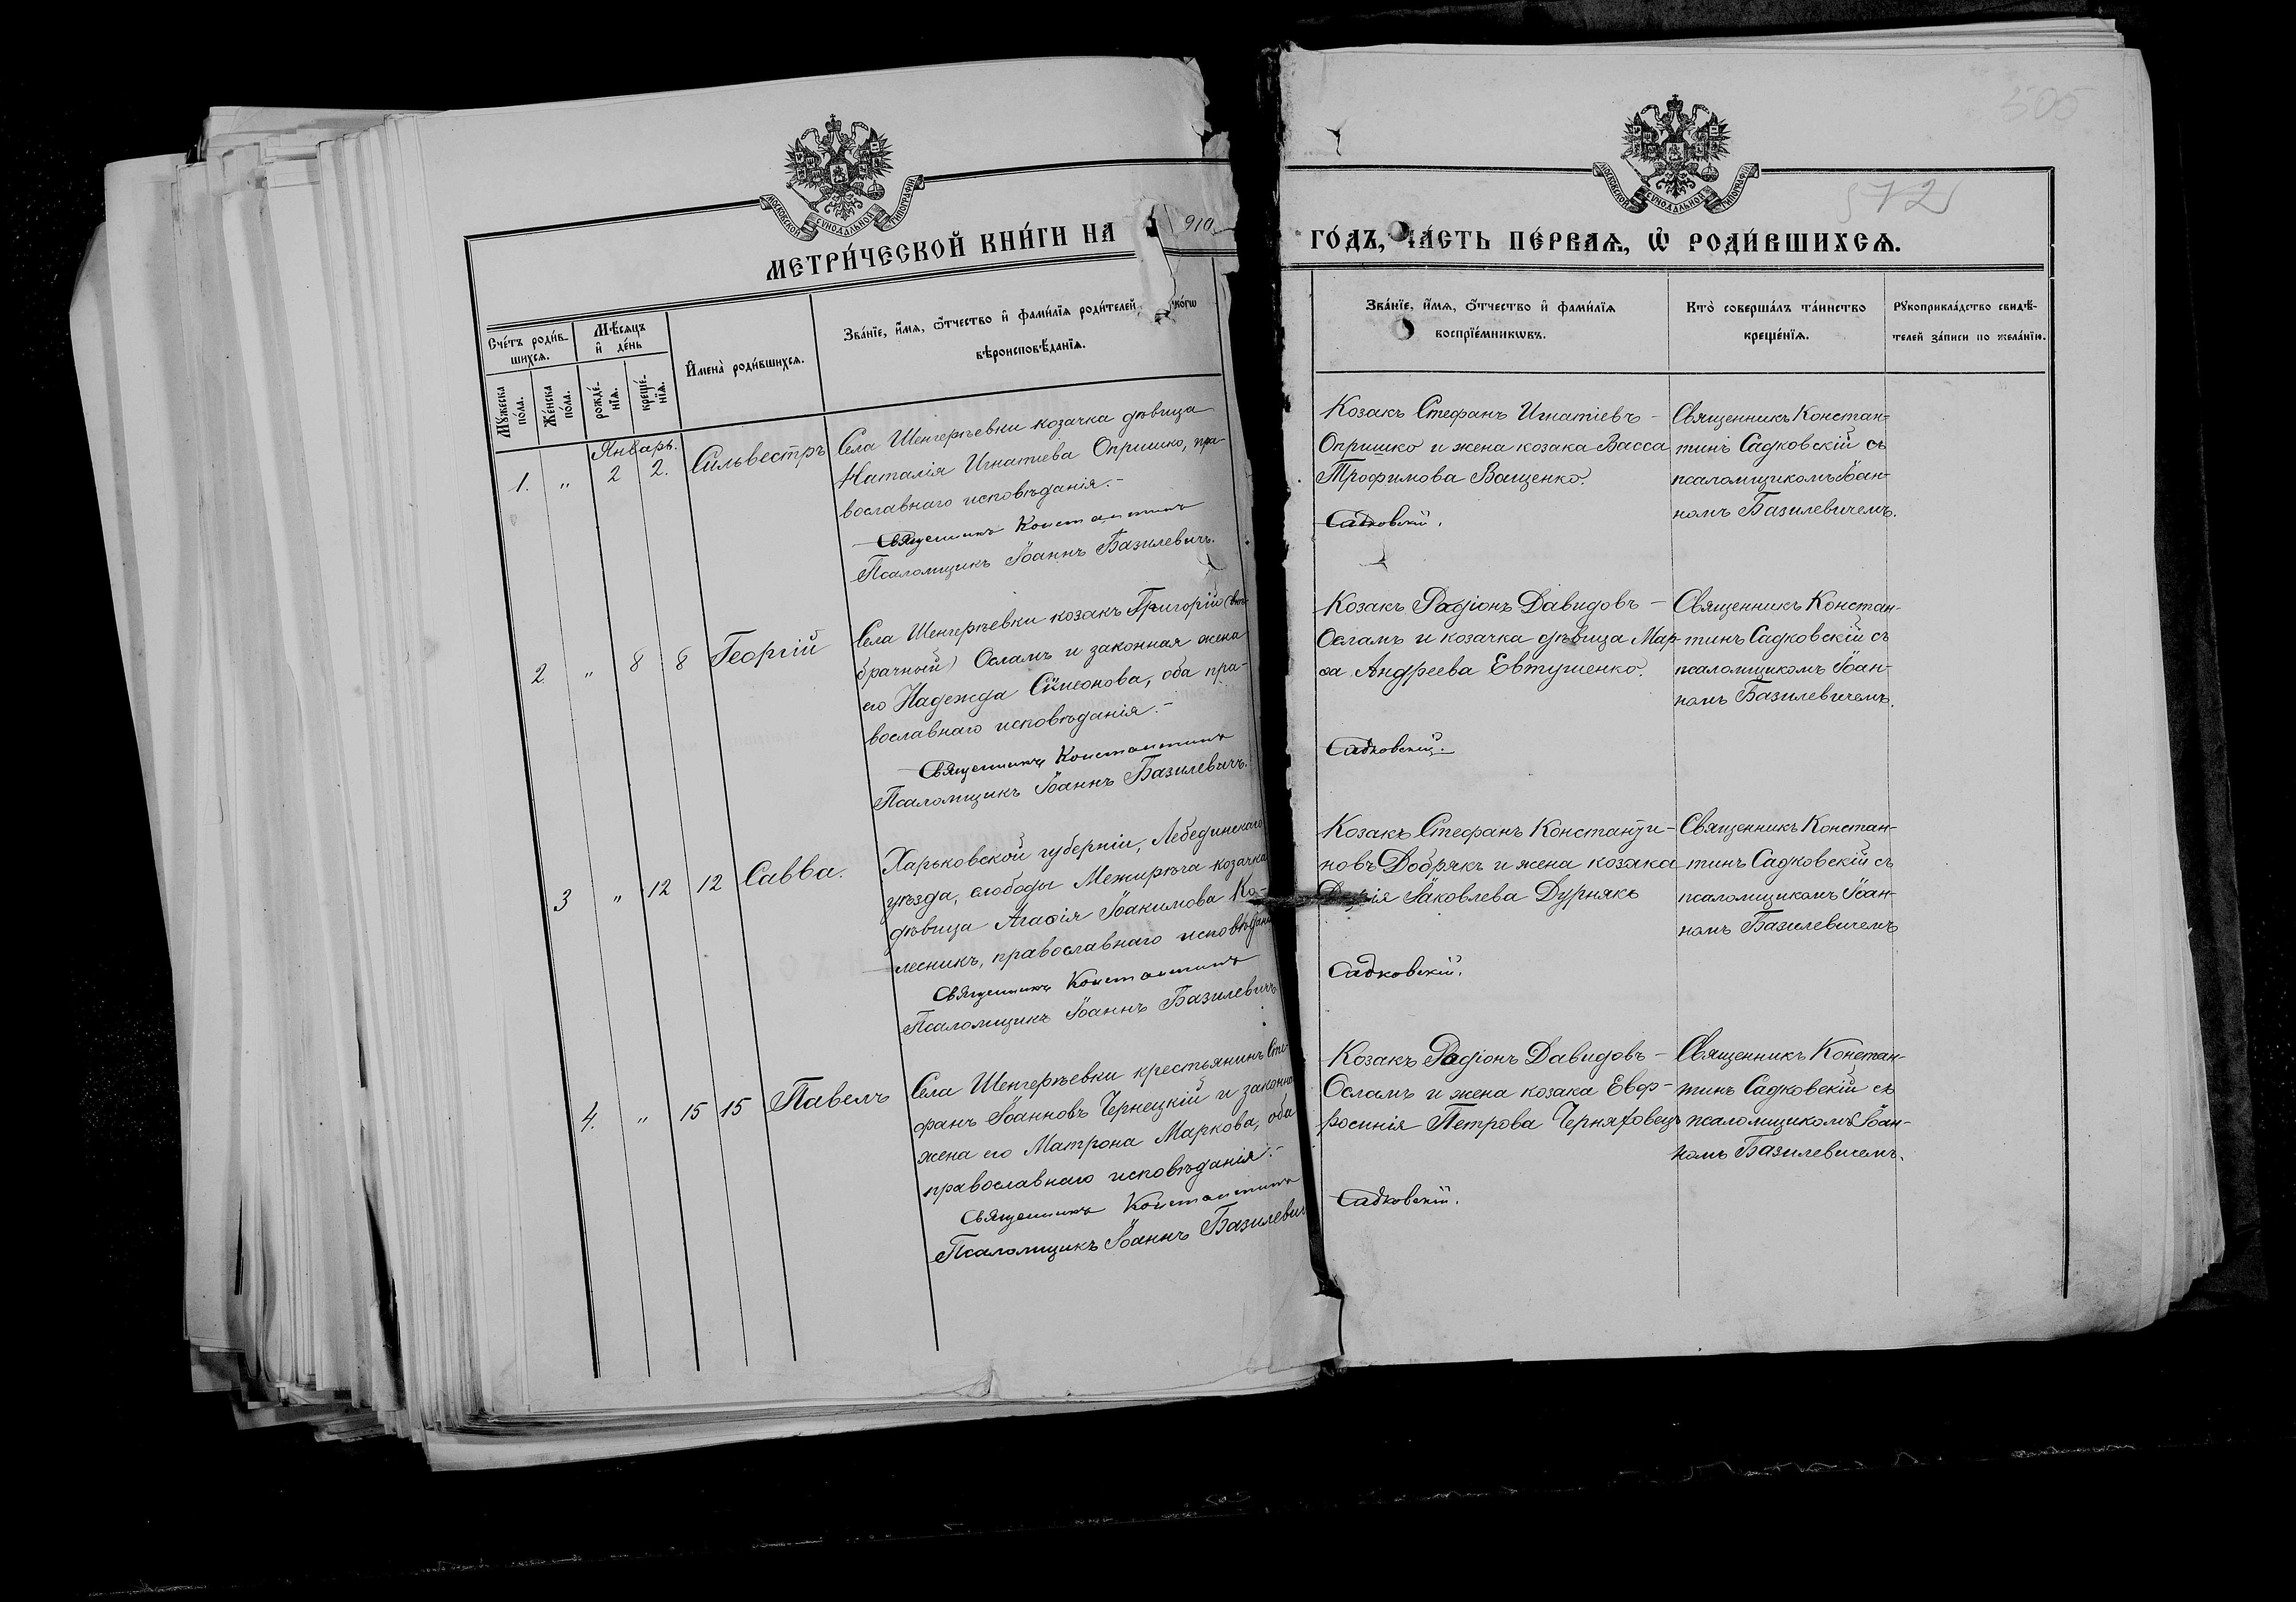 505
572
МОСКОВСКОЙ СѴНОДАЛЬНОЙ ТИПОГРАФІИ
МОСКОВСКОЙ СѴНОДАЛЬНОЙ ТИПОГРАФІИ
МЕТРИ́ЧЕСКОЙ КНИ́ГИ НА 910
ГО́ДЪ, ЧА́СТЬ ПЕ́РВАѦ, Ѡ҆ РОДИ́ВШИХСѦ.
Сче́тъ роди́в-
шихсѧ.
Мѣ́сѧцъ
и҆ де́нь
И҆мена̀ роди́вшихсѧ.
Зва́нїе, и҆́мѧ, ѻ҆́тчество и҆ фами́лїѧ роди́телей, ко́гѡ
вѣроисповѣ́данїѧ.
Мꙋ́жеска
по́ла.
Же́нска
по́ла.
рожде́-
нїѧ.
креще́-
нїѧ.
Зва́нїе, и҆́мѧ, ѻ҆́тчество и҆ фами́лїѧ
воспрїе́мникѡвъ.
Кто̀ соверша́лъ та́инство
креще́нїѧ.
Рꙋкоприкла́дство свидѣ́-
телей за́писи по жела́нїю.
Январь.
1. " 2 2. Сильвестръ
Села Шенгеріевки козачка дѣвица
Наталія Игнатіева Опришко, пра-
вославнаго исповѣданія.-
Священникъ Константинъ
Псаломщикъ Іоаннъ Базилевичъ.
Козакъ Стефанъ Игнатіевъ -
Опришко и жена козака Васса
Трофимова Ващенко.
Садковскій.
Священникъ Констан-
тинъ Садковскій съ
псаломщикомъ Іоан-
номъ Базилевичемъ.
2. " 8 8 Георгій
Села Шенгеріевки козакъ Григорій (вто-
брачный) Осламъ и законная жена
его Надежда Сѵмеонова, оба пра-
вославнаго исповѣданія.-
Священникъ Константинъ
Псаломщикъ Іоаннъ Базилевичъ.
Козакъ Радіонъ Давидовъ -
Осламъ и козачка дѣвица Мар-
ѳа Андреева Евтушенко.
Садковскій.
Священникъ Констан-
тинъ Садковскій съ
псаломщикомъ Іоан-
номъ Базилевичемъ.
3 " 12 12 Савва.
Харьковской губерніи, Лебединскаго
уѣзда, слободы Межирѣча козачка
дѣвица Агаѳія Іоакимова Ко-
лесникъ, православнаго исповѣдані
Священникъ Константинъ
Псаломщикъ Іоаннъ Базилевичъ
Козакъ Стефанъ Константи-
новъ Добрякъ и жена козака
Іаковлева Дурнякъ
Садковскій.
Священникъ Констан-
тинъ Садковскій съ
псаломщикомъ Іоан-
номъ Базилевичемъ
4. " 15 15 Павелъ
Села Шенгеріевки крестьянинъ Сте-
фанъ Іоанновъ Чернецкій и законна
жена его Матрона Маркова, оба
православнаго исповѣданія.-
Священникъ Константинъ
Псаломщикъ Іоаннъ Базилевич
Козакъ Радіонъ Давидовъ -
Осламъ и жена козака Евф-
росинія Петрова Черняховецъ
Садковскій.
Священникъ Констан-
тинъ Садковскій съ
псаломщикомъ Іоан-
номъ Базилевичемъ.